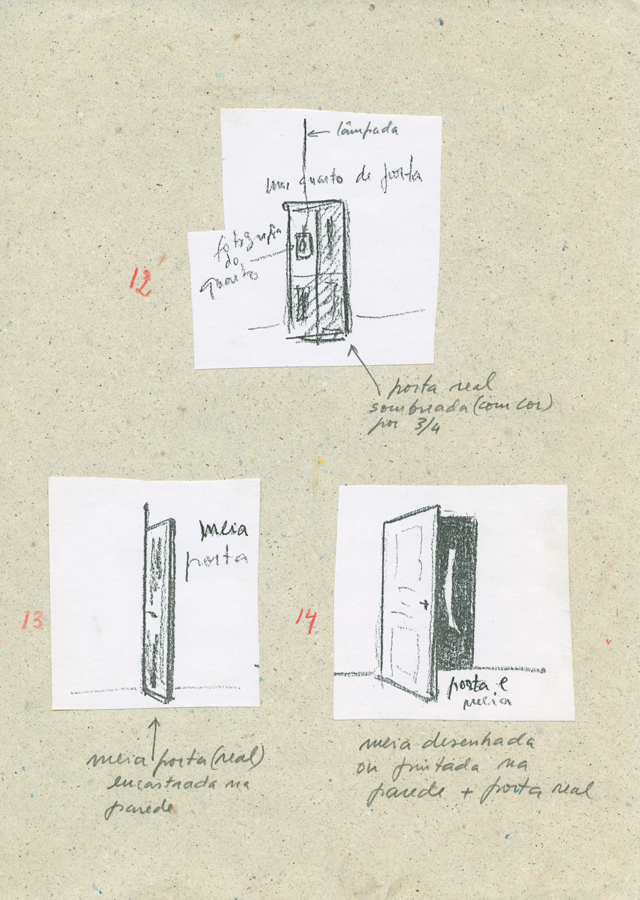 ← lâmpada
um quarto de porta
fotografia
do
quarto
12
porta real
sombreada (com cor)
por 3/4
meia
porta
13
meia porta (real)
encastrada na
parede
14
porta e
meia
meia desenhada
ou pintada na
parede + porta real